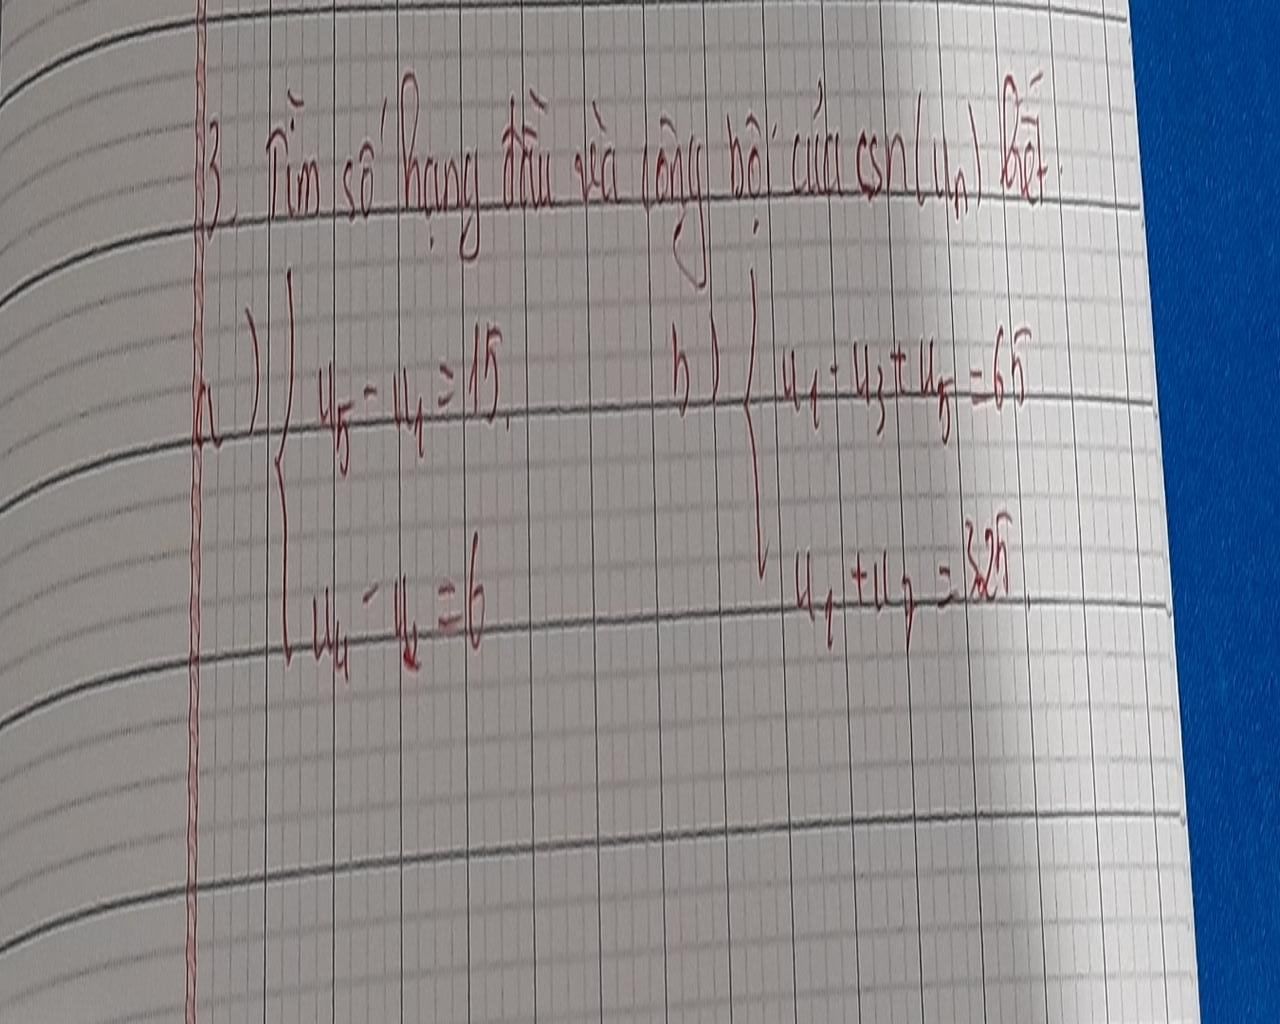 3. Tìm số hạng đầu và công bội của csn (uₙ) biết.
a) { u₅ - u₁ = 15. b) { u₁ - u₃ + u₅ = 65
u₄ - u₁ = 6 u₁ + u₇ = 325.